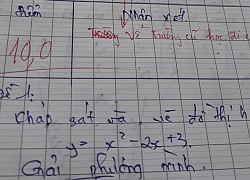 Điểm
Nhận xét
10,0
Trường về trường chỉ học để
Đề 1:
Khảo sát và vẽ đồ thị h
y = x² - 2x + 3.
Giải phương trình.